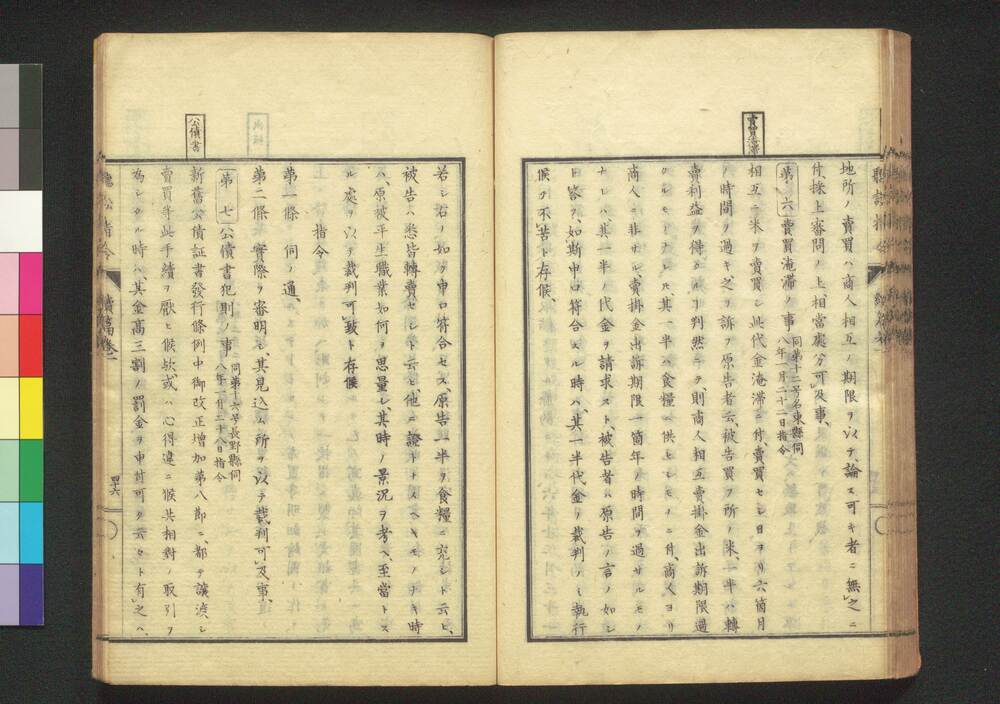 賣買淹滯
地所ノ賣買ハ商人相互ノ期限ヲ以テ論ス可キ者ニ無之ニ
付採上審問ノ上相當處分可及事、
第六 賣買淹滯ノ事 同第十二号名東縣伺 八年一月二十二日指令
相互ニ米ヲ賣買シ此代金淹滯ニ付、賣買セシ日ヨリ六箇月
ノ時間ヲ過キ之ヲ訴フ原告者云、被告買フ所ノ米、一半ハ轉
賣利益ヲ得ヒシ丁判然ニテ、則商人相互賣掛金出訴期限過
クルモノナレ𪜈、其一半ハ食糧ニ供セシモノニ付、商人ヨリ
商人ニ非サル、賣掛金出訴期限一箇年ノ時間ヲ過サルモノ
ナレハ、其一半ノ代金ヲ請求スト、被告者ハ原告ノ言ノ如シ
ト答フ、如斯申口符合スル時ハ、其一半代金ノ裁判ノミ執行
候テ不苦ト存候、
若シ右ノ如ク申口符合セス、原告一半ヲ食糧ニ充シト云ヒ、
被告ハ悉皆轉賣セシト云ヒ、他ニ證牛トスヘキモノナキ時
ハ、原被平生職業如何ヲ思量シ、其時ノ景況ヲ考ヘ、至當トス
ル處ヲ以テ裁判可致ト存候
指令
第一條 伺ノ通、
第二條 實際ヲ審明セ、其見込ム所ヲ以テ裁判可及事、
公債書
第七 公債書犯則ノ事 同第十六号長野縣伺 八年一月二十八日指令
新舊公債証書發行條例中御改正増加第八節ニ、都テ讓渡シ
賣買等此手續ヲ厭ヒ候欤或ハ心得違ニ候共相對ノ取引ヲ
為シタル時ハ、其金高三割ノ罰金ヲ申付可ク云々ト有之ハ、
聽訟指令
續篇卷一
四十六